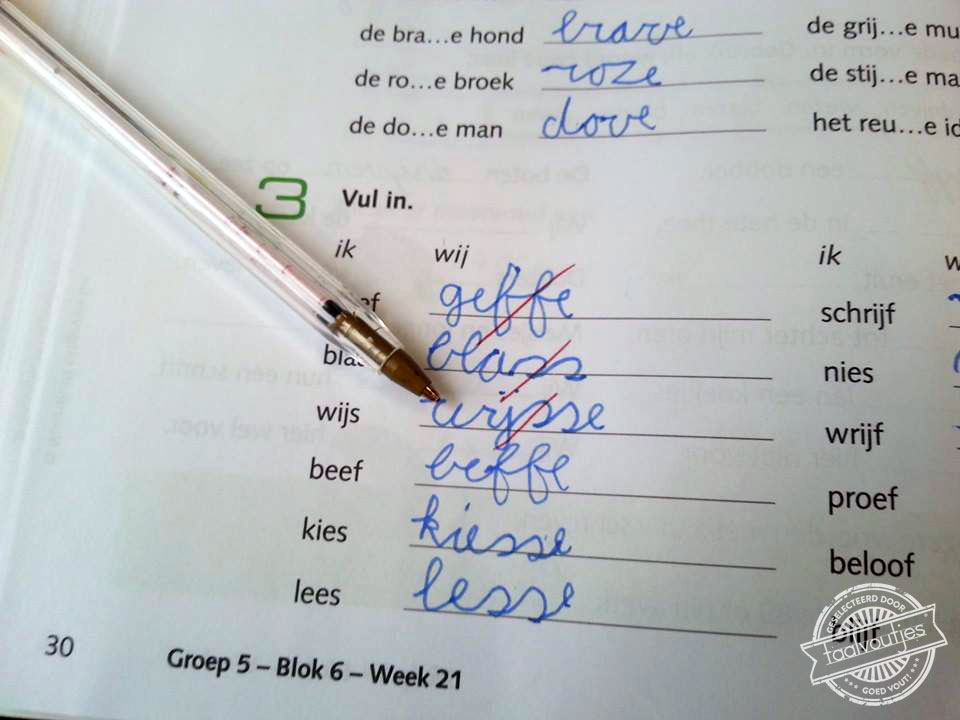 de bra…e hond brave de grij…e mu
de ro…e broek roze de stij…e ma
de do…e man dove het reu…e id
3 Vul in.
ik wij ik w
ef geffe schrijf
bla blass nies
wijs wijsse wrijf
beef beffe proef
kies kiesse beloof
lees lesse
GESELECTEERD DOOR
taalvoutjes
GOED VOUT!
30 Groep 5 – Blok 6 – Week 21